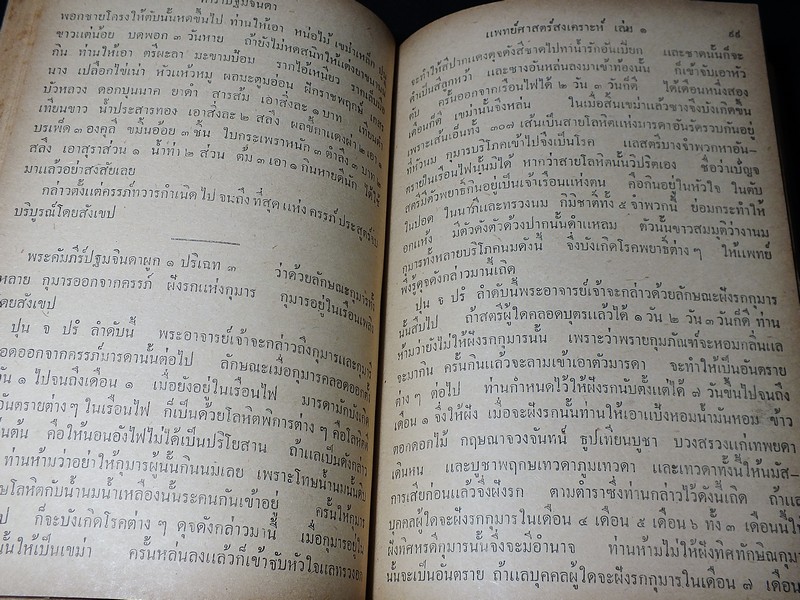 ตำราปฐมจินดา
พอกชายโครงให้ตับนั้นหดขึ้นไป ท่านให้เอา หน่อไม้ เขม่าเหล็ก ปูน
ชาวแต่น้อย บดพอก ๓ วันหาย ถ้ายังไม่หดสนิทให้แต่งยาขนานนี้
กิน ท่านให้เอา ตรีผะลา มะขามป้อม รากไอ้เหนียว
นาง เปลือกไข่เน่า หัวแห้วหมู ผลมะตูมอ่อน ฝักราชพฤกษ์ เกสร
บัวหลวง ดอกบุนนาค ยาดำ สารส้ม เอาสิ่งละ ๑ บาท เทียนดำ
เทียนขาว น้ำประสารทอง เอาสิ่งละ ๒ สลึง ผลขี้กาแดงผ่า ๒ เอา ๑
บรเพ็ด ๓ องคุลี ขมิ้นอ้อย ๓ ชิ้น ใบกระเพราหนัก ๓ ตำลึง ๓ บาท ๒
สลึง เอาสุราส่วน ๑ น้ำท่า ๒ ส่วน ต้ม ๓ เอา ๑ กินหายดีนัก ได้ใช้
มาแล้วอย่าสงสัยเลย
กล่าวตั้งแต่ครรภ์ทวารกำเนิดไป จนถึงที่สุดแห่งครรภ์ประสูตร์ไป
บริบูรณ์โดยสังเขป
พระคัมภีร์ปฐมจินดาผูก ๑ ปริเฉท ๓ ว่าด้วยลักษณะกุมารทั้ง
หลาย กุมารออกจากครรภ์ ฝังรกแห่งกุมาร กุมารอยู่ในเรือนเพลิง
โดยสังเขป
ปุน จ ปรํ ลำดับนี้ พระอาจารย์เจ้าจะกล่าวถึงกุมารและกุมารี
คลอดออกจากครรภ์มารดานั้นต่อไป ลักษณะเมื่อกุมารคลอดออกได้
วัน ๑ ไปจนถึงเดือน ๑ เมื่อยังอยู่ในเรือนไฟ มารดามักบังเกิด
อันตรายต่าง ๆ ในเรือนไฟ ก็เป็นด้วยโลหิตพิการต่าง ๆ คือโลหิตตี
ขึ้นต้น คือให้นอนอังไฟไม่ได้เป็นปริโยสาน ถ้าแลเป็นดังกล่าว
ท่านห้ามว่าอย่าให้กุมารผู้นั้นกินนมเลย เพราะโทษน้ำนมนั้นดิบ
โลหิตกับน้ำนมน้ำเหลืองนั้นระคนกันเข้าอยู่ ครั้นให้กุมาร
ก็จะบังเกิดโรคต่าง ๆ ดุจดังกล่าวมานี้ เมื่อกุมารอยู่ใน
นั้นให้เป็นเขม่า ครั้นหล่นลงแล้วก็เข้าจับหัวใจแลทรวงอก
แพทย์ศาสตร์สงเคราะห์ เล่ม ๑ ๙๙
จะทำให้สีปากแดงดุจดังสีชาดไปทาน้ำรักอันเปียก และชาดนั้นก็จะ
ดำเป็นสีลูกหว้า และซางอันหล่นลงมาเข้าท้องนั้น ก็เข้าขั้วเอาหัว
ตับ ครั้นออกจากเรือนไฟได้ ๒ วัน ๓ วันก็ดี ได้เดือนหนึ่งสอง
เดือนก็ดี เขม่านั้นจึงหล่น ในเมื่อสิ้นเขม่าแล้วซางจึงบังเกิดขึ้น
เพราะเส้นเอ็นทั้ง ๓๐๗ เส้นเป็นสายโลหิตแห่งมารดาอันรัดรวบกันอยู่
ที่หัวนม กุมารบริโภคเข้าไปจึงเป็นโรค แลสตรีบางจำพวกหาอัน-
ตรายในเรือนไฟนั้นมิได้ หากว่าสายโลหิตนั้นวิปริตเอง ชื่อว่าเบ็ญจ
สตรีมีตัวพยาธิกินอยู่เป็นเจ้าเรือนแห่งตน คือกินอยู่ในหัวใจ ในตับ
ในปอด ในนาภีและทรวงนม กิมิชาติทั้ง ๕ จำพวกนี้ ย่อมกระทำให้
อกแห้ง มีตัวดังตัวด้วงปากนั้นดำแหลม ตัวนั้นขาวสมมุติว่างานม
กุมารทั้งหลายบริโภคนมดังนี้ จึงบังเกิดโรคพยาธิ์ต่าง ๆ ให้แพทย์
พึ่งรู้ดุจดังกล่าวมานี้เกิด
ปุน จ ปรํ ลำดับนี้พระอาจารย์เจ้าจะกล่าวด้วยลักษณะฝังรกกุมาร
นั้นสืบไป ถ้าสตรีผู้ใดคลอดบุตรแล้วได้ ๑ วัน ๒ วัน ๓ วันก็ดี ท่าน
ห้ามว่ายังไม่ให้ฝังรกกุมารนั้น เพราะว่าพรายกุมภัณฑ์จะหอมกลิ่นแล
จะมากัน ครั้นกินแล้วจะลามเข้าเอาตัวมารดา จะทำให้เป็นอันตราย
ต่าง ๆ ต่อไป ท่านกำหนดไว้ให้ฝังรกนับตั้งแต่ได้ ๗ วันขึ้นไปจนถึง
เดือน ๑ จึงให้ฝัง เมื่อจะฝังรกนั้นท่านให้เอาแป้งหอมน้ำมันหอม ข้าว
ตอกดอกไม้ กฤษณาจวงจันทน์ ธูปเทียนบูชา บวงสรวงแก่เทพยดา
เดินหน และบูชาพฤกษเทวดาภูมเทวดา และเทวดาทั้งนี้ให้นมัส-
การเสียก่อนแล้วจึงฝังรก ตามตำราซึ่งท่านกล่าวไว้ดังนี้เถิด ถ้าแล
บุคคลผู้ใดจะฝังรกกุมารในเดือน ๔ เดือน ๕ เดือน ๖ ทั้ง ๓ เดือนนี้ให้
ฝังทิศหรดีกุมารนั้นจึงจะมีอำนาจ ท่านห้ามไม่ให้ฝังทิศทักษิณกุมาร
นั้นจะเป็นอันตราย ถ้าแลบุคคลผู้ใดจะฝังรกกุมารในเดือน ๗ เดือน